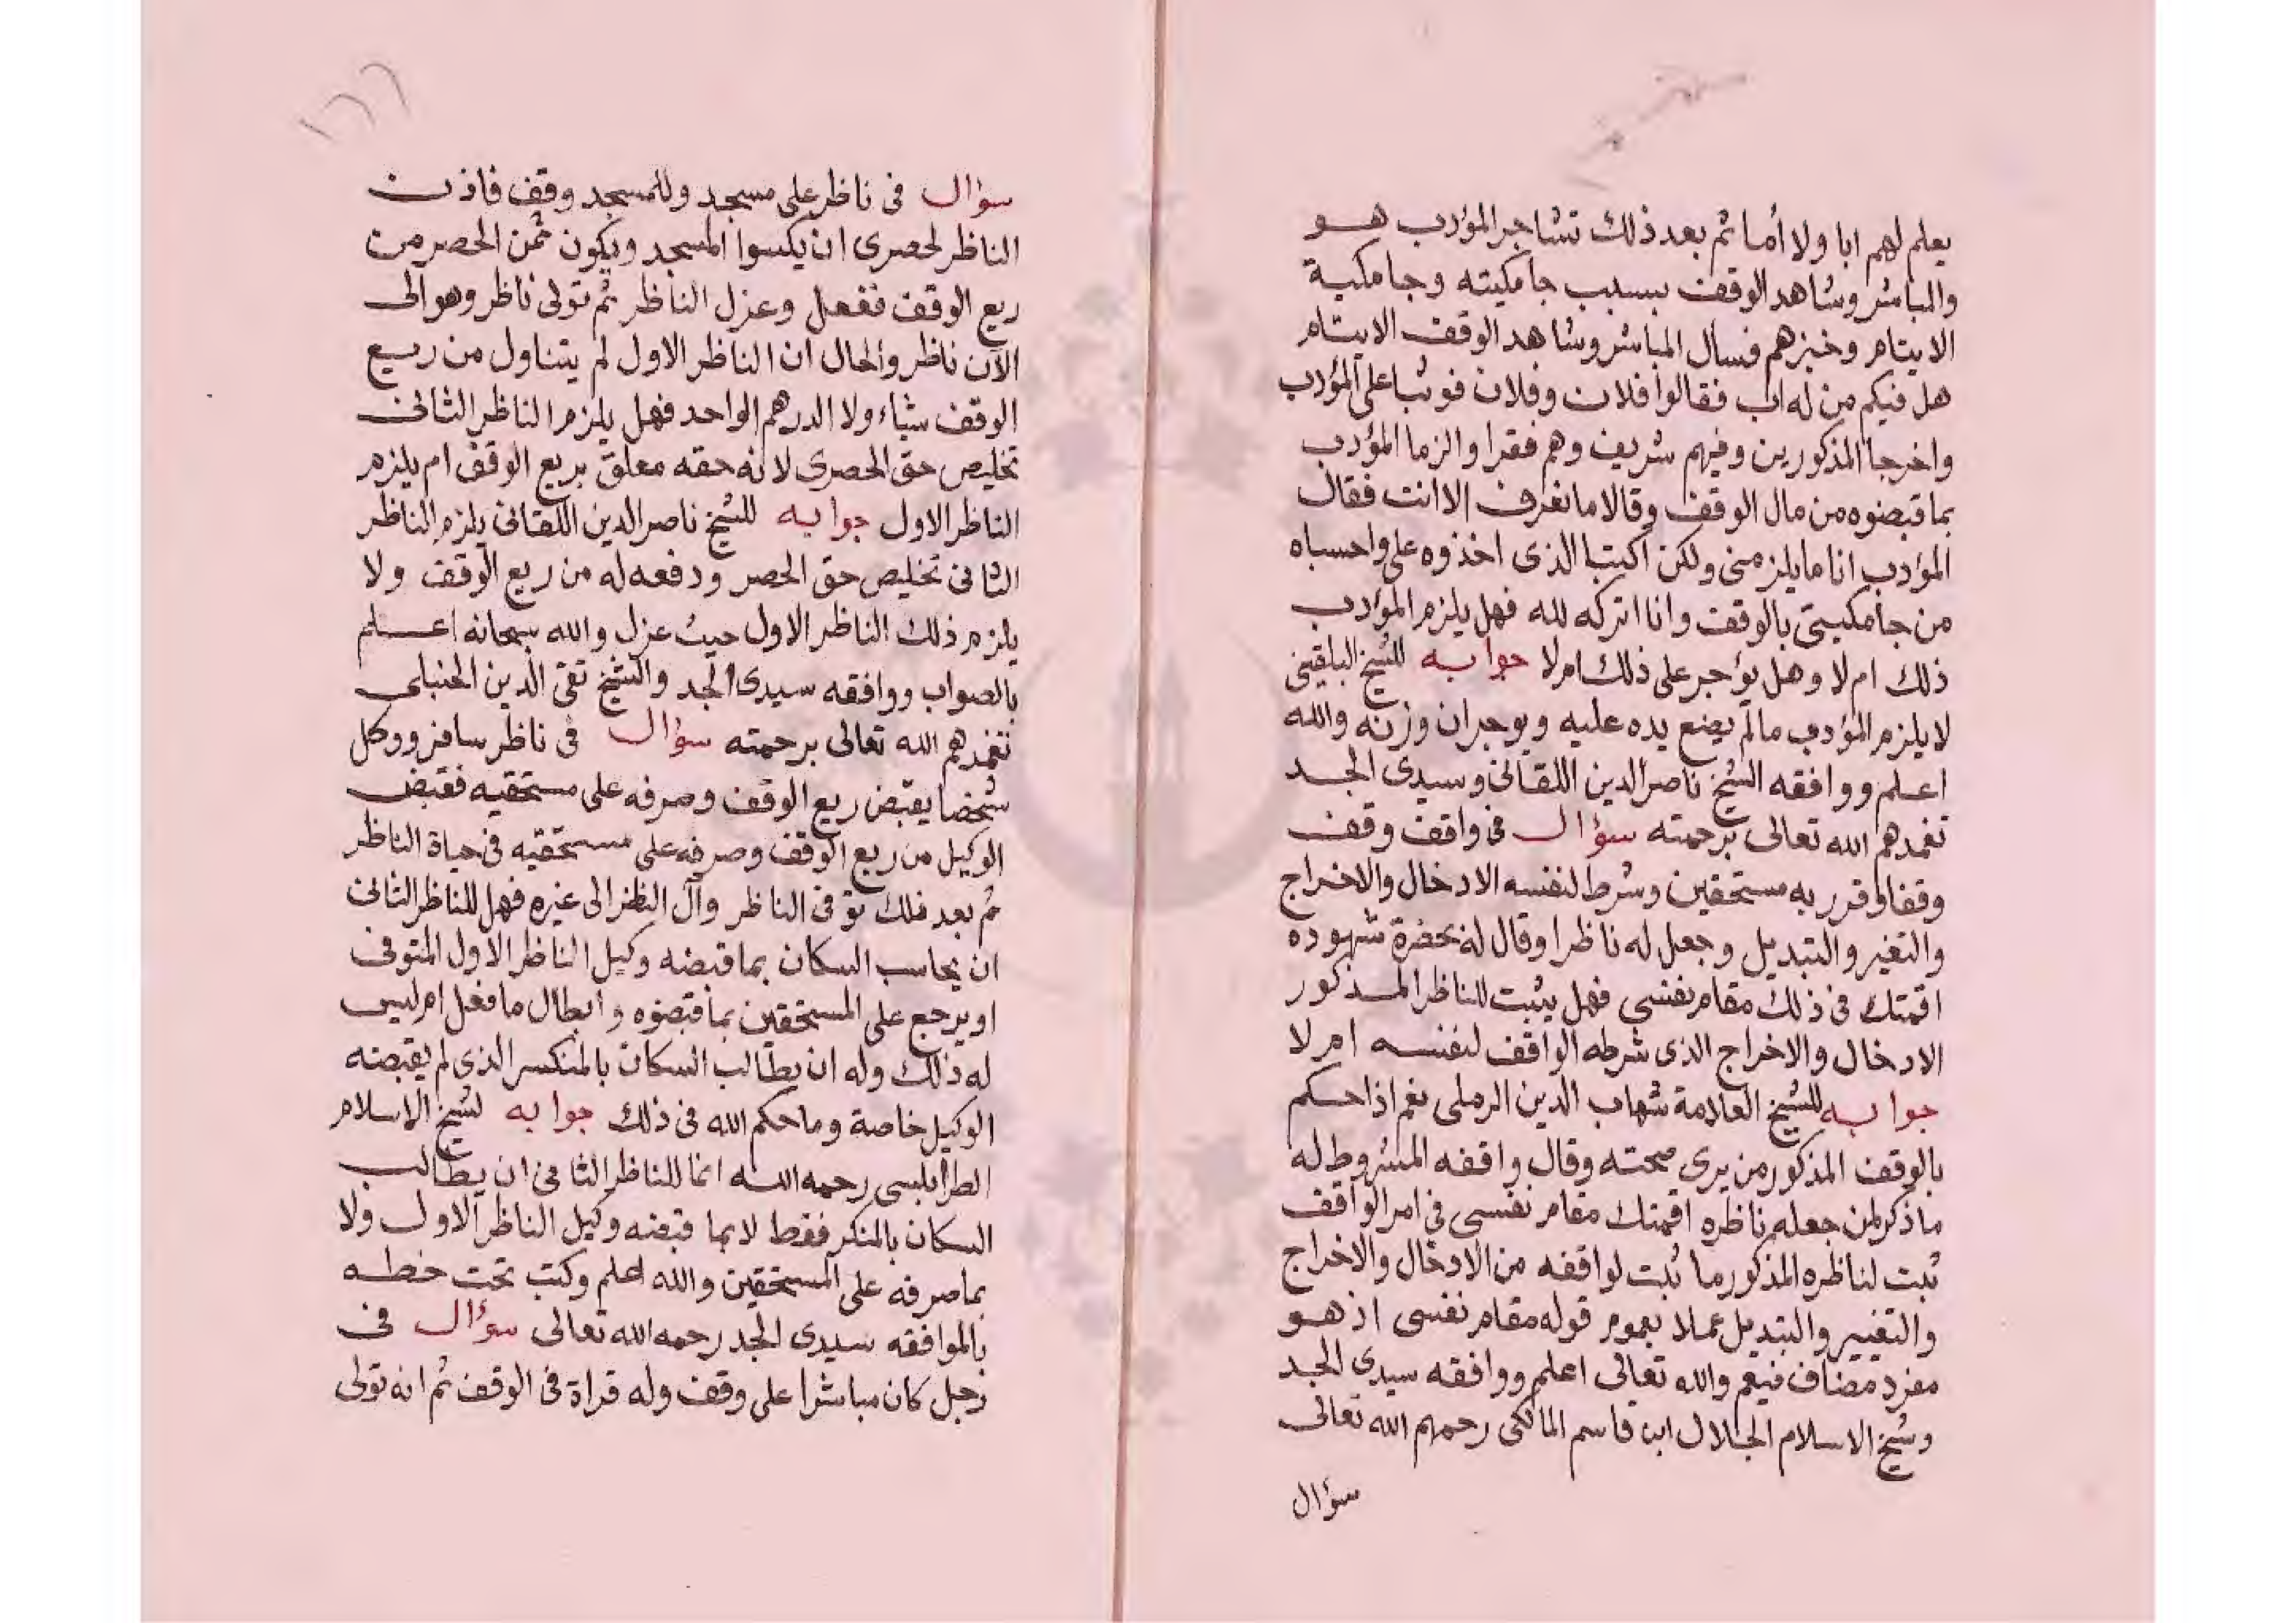 يعلم لهم ابا ولا أما ثم بعد ذلك تشاجر المؤدب هو
والمباشر وشاهد الوقف بسبب جامكيته وجامكية
الايتام وخبزهم فسال المباشر وشاهد الوقف الايتام
هل فيكم من له اب فقالوا فلان وفلان فوثبا على المؤدب
واخرجا المذكورين وفيهم شريف وهم فقرا والزما المؤدب
بما قبضوه من مال الوقف وقالا ما نعرف الا انت فقال
المؤدب انا ما يلزمنى ولكن اكتبا الذى اخذوه على واحسباه
من جامكيتى بالوقف وانا اتركه لله فهل يلزم المؤدب
ذلك ام لا وهل يؤجر على ذلك ام لا جوابه للشيخ البلقينى
لا يلزم المؤدب ما لم يضع يده عليه ويوجر ان وزنه والله
اعلم ووافقه الشيخ ناصر الدين اللقانى وسيدى الجد
تغمدهم الله تعالى برحمته سؤال فى واقف وقف
وقفا وقرر به مستحقين وشرط لنفسه الادخال والاخراج
والتغير والتبديل وجعل له ناظرا وقال له بحضرة شهوده
اقمتك فى ذلك مقام نفسى فهل يثبت للناظر المذكور
الادخال والاخراج الذى شرطه الواقف لنفسه ام لا
جوابه للشيخ العلامة شهاب الدين الرملى نعم اذا حكم
بالوقف المذكور من يرى صحته وقال واقفه المشروط له
ما ذكر لمن جعله ناظره اقمتك مقام نفسى فى امر الواقف
ثبت لناظره المذكور ما ثبت لواقفه من الادخال والاخراج
والتغيير والتبديل عملا بعموم قوله مقام نفسى اذ هو
مفرد مضاف فيعم والله تعالى اعلم ووافقه سيدى الجد
وشيخ الاسلام الجلال ابن قاسم المالكى رحمهم الله تعالى
سؤال
١٦٦
سؤال فى ناظر على مسجد وللمسجد وقف فاذن
الناظر لحصرى ان يكسوا المسجد ويكون ثمن الحصر من
ريع الوقف ففعل وعزل الناظر ثم تولى ناظر وهو الى
الآن ناظر والحال ان الناظر الاول لم يتناول من ريع
الوقف شياء ولا الدرهم الواحد فهل يلزم الناظر الثانى
تخليص حق الحصرى لانه حقه معلق بريع الوقف ام يلزم
الناظر الاول جوابه للشيخ ناصر الدين اللقانى يلزم الناظر
الثانى تخليص حق الحصر ودفعه له من ريع الوقف ولا
يلزم ذلك الناظر الاول حيث عزل والله سبحانه اعلم
بالصواب ووافقه سيدى الجد والشيخ تقى الدين الحنبلى
تغمدهم الله تعالى برحمته سؤال فى ناظر سافر ووكل
شخصا يقبض ريع الوقف وصرفه على مستحقيه فقبض
الوكيل من ريع الوقف وصرفه على مستحقيه فى حياة الناظر
ثم بعد ذلك توفى الناظر وآل النظر الى غيره فهل للناظر الثانى
ان يحاسب السكان بما قبضه وكيل الناظر الاول المتوفى
او يرجع على المستحقين بما قبضوه وابطال ما فعل ام ليس
له ذلك وله ان يطالب السكان بالمنكسر الذى لم يقبضه
الوكيل خاصة وما حكم الله فى ذلك جوابه لشيخ الاسلام
الطرابلسى رحمه الله انما للناظر الثانى ان يطالب
السكان بالمنكر فقط لا بما قبضه وكيل الناظر الاول ولا
بما صرفه على المستحقين والله اعلم وكتب تحت خطه
بالموافقه سيدى الجد رحمه الله تعالى سؤال فى
رجل كان مباشرا على وقف وله قراة فى الوقف ثم انه تولى